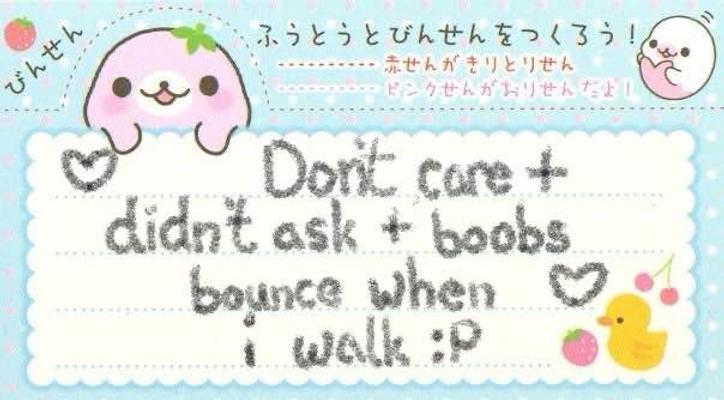 びんせん
ふうとうとびんせんをつくろう!
赤せんがきりとりせん
ピンクせんがおりせんだよ!
Don't care +
didn't ask + boobs
bounce when
i walk :P